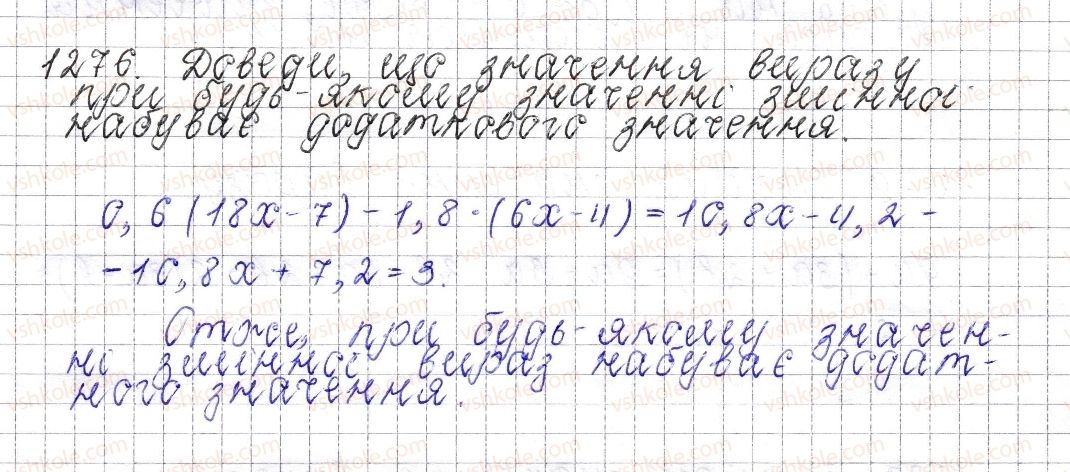 1276. Доведи, що значення виразу
при будь-якому значенні змінної
набуває додатнового значення.
0,6(18x-7)-1,8·(6x-4)=10,8x-4,2-
-10,8x+7,2=3.
Отже, при будь-якому значен-
ні змінної вираз набуває додат-
ного значення.